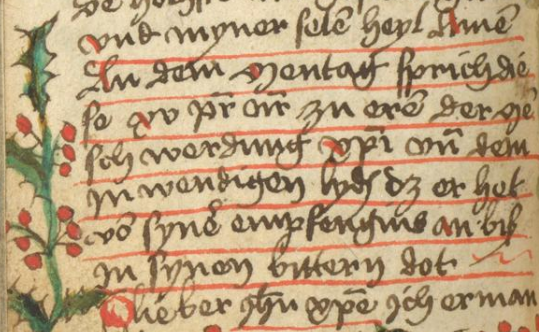 vnd myner selē heyl Amē
An dem mentag sprich die
se xv pr̄ nr̄ zu erē der mē
sch werdung xpī vn̄ dem
Inwendigen lydē dz er het
võ synē empfengnis an biß
In synen bittern dot
O lieber ihū xpē ich erman